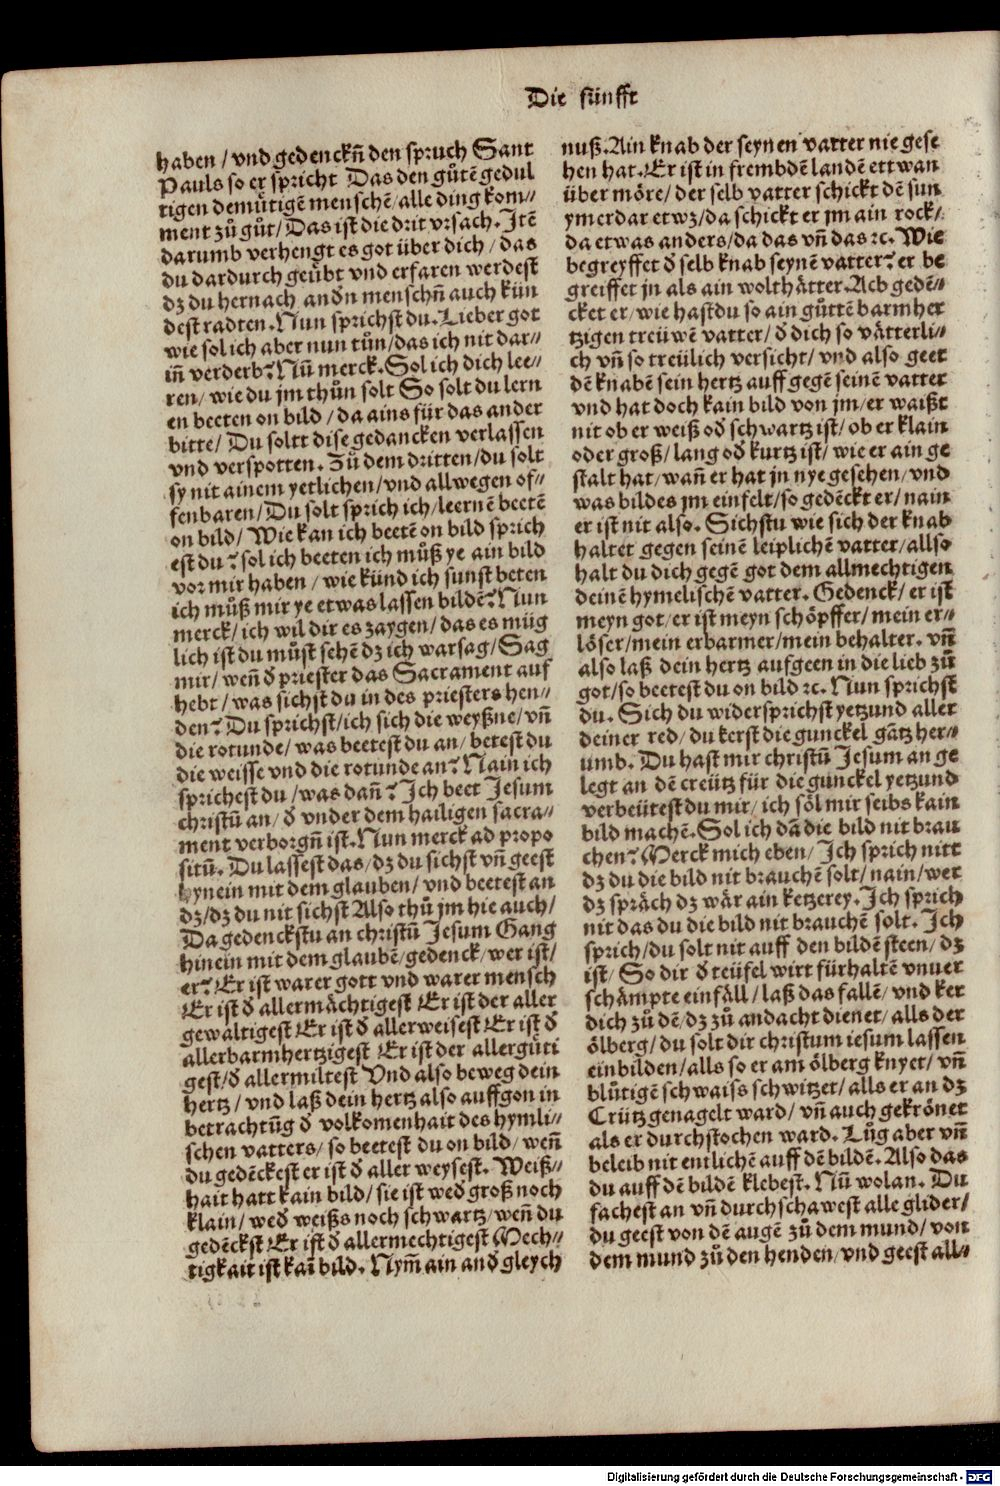 Die fünfft
haben / vnd gedenckñ den spruch Sant
Pauls so er spricht Das den gůtẽ gedul
tigen demütigẽ menschẽ / alle ding kom⸗
ment zů gůt / Das ist die drit vrsach. Jtẽ
darumb verhengt es got über dich / das
du dardurch geübt vnd erfaren werdest
dz du hernach andn menschñ auch kün
dest radten. Nun sprichst du. Lieber got
wie sol ich aber nun tůn / das ich nit dar⸗
iñ verderb? Nũ merck. Sol ich dich lee⸗
ren / wie du jm thůn solt So solt du lern
en beeten on bild / da ains für das ander
bitte / Du soltt dise gedancken verlassen
vnd verspotten. Zů dem dritten / du solt
sy nit ainem yetlichen / vnd allwegen of⸗
fenbaren / Du solt sprich ich / leernẽ beetẽ
on bild / Wie kan ich beetẽ on bild sprich
est du? sol ich beeten ich můß ye ain bild
vor mir haben / wie künd ich sunst beten
ich můß mir ye etwas lassen bildẽ? Nun
merck / ich wil dir es zaygen / das es müg
lich ist du můst sehẽ dz ich warsag / Sag
mir / weñ đ priester das Sacrament auf
hebt / was sichst du in des priesters hen⸗
den? Du sprichst / ich sich die weyßne / vñ
die rotunde / was beetest du an / betest du
die weisse vnd die rotunde an? Nain ich
sprichest du / was dañ? Jch beet Jesum
christũ an / đ vnder dem hailigen sacra⸗
ment verborgñ ist. Nun merck ad propo
situ̅. Du lassest das / dz du sichst vñ geest
hynein mit dem glauben / vnd beetest an
dz / dz du nit sichst Also thů jm hie auch /
Da gedenckstu an christũ Jesum Gang
hinein mit dem glaubẽ / gedenck / wer ist /
er? Er ist warer gott vnd warer mensch
Er ist đ allermächtigest Er ist der aller
gewaltigest Er ist đ allerweisest Er ist đ
allerbarmhertzigest Er ist der allergůti
gest / đ allermiltest Vnd also beweg dein
hertz / vnd laß dein hertz also auffgon in
betrachtũg đ volkomenhait des hymli⸗
schen vatters / so beetest du on bild / weñ
du gedẽckest er ist đ aller weysest. Weiß⸗
hait hatt kain bild / sie ist wed̓ groß noch
klain / wed̓ weißs noch schwartz / weñ du
gedẽckst Er ist đ allermechtigest Mech⸗
tigkait ist kaĩ bild. Nym̃ ain and̓ gleych
nuß. Ain knab der seynen vatter nie gese
hen hat. Er ist in frembdẽ landẽ ettwan
über möre / der selb vatter schickt dẽ sun
ymerdar etwz / da schickt er jm ain rock /
da etwas anders / da das vñ das ⁊c. Wie
begreyffet đ selb knab seynẽ vatter? er be
greiffet jn als ain wolthätter. Ach gedẽ⸗
cket er / wie hastdu so ain gůttẽ barmher
tzigen treüwẽ vatter / đ dich so vätterli⸗
ch vñ so treülich versicht / vnd also geet
dẽ knabẽ sein hertz auff gegẽ seinẽ vatter
vnd hat doch kain bild von jm / er waißt
nit ob er weiß od̓ schwartz ist / ob er klain
oder groß / lang od̓ kurtz ist / wie er ain ge
stalt hat / wañ er hat jn nye gesehen / vnd
was bildes jm einfelt / so gedẽckt er / nain
er ist nit also. Sichstu wie sich der knab
haltet gegen seinẽ leiplichẽ vatter / allso
halt du dich gegẽ got dem allmechtigen
deinẽ hymelischẽ vatter. Gedenck / er ist
meyn got / er ist meyn schöpffer / mein er⸗
löser / mein erbarmer / mein behalter. vñ
also laß dein hertz aufgeen in die lieb zů
got / so beetest du on bild ⁊c. Nun sprichst
du. Sich du widersprichst yetzund aller
deiner red / du kerst die gunckel gãtz her⸗
umb. Du hast mir christũ Jesum an ge
legt an dẽ creütz für die gunckel yetzund
verbeütest du mir / ich söl mir seibs kain
bild machẽ. Sol ich dã die bild nit brau
chen? Merck mich eben / Jch sprich nitt
dz du die bild nit brauchẽ solt / nain / wer
dz spräch dz wär ain ketzerey. Jch sprich
nit das du die bild nit brauchẽ solt. Jch
sprich / du solt nit auff den bildẽ steen / dz
ist / So dir đ teüfel wirt fürhaltẽ vnuer
schämpte einfäll / laß das fallẽ / vnd ker
dich zů dẽ / dz zů andacht dienet / alls der
ölberg / du solt dir christum iesum lassen
einbilden / alls so er am ölberg knyet / vñ
blůtigẽ schwaiss schwitzet / alls er an dz
Crütz genagelt ward / vñ auch gekrönet
als er durchstochen ward. Lůg aber vñ
beleib nit entlichẽ auff dẽ bildẽ. Also das
du auff dẽ bildẽ klebest. Nũ wolan. Du
fachest an vñ durchschawest alle glider /
du geest von dẽ augẽ zů dem mund / von
dem mund zů den henden / vnd geest all⸗
Digitalisierung gefördert durch die Deutsche Forschungsgemeinschaft - DFG